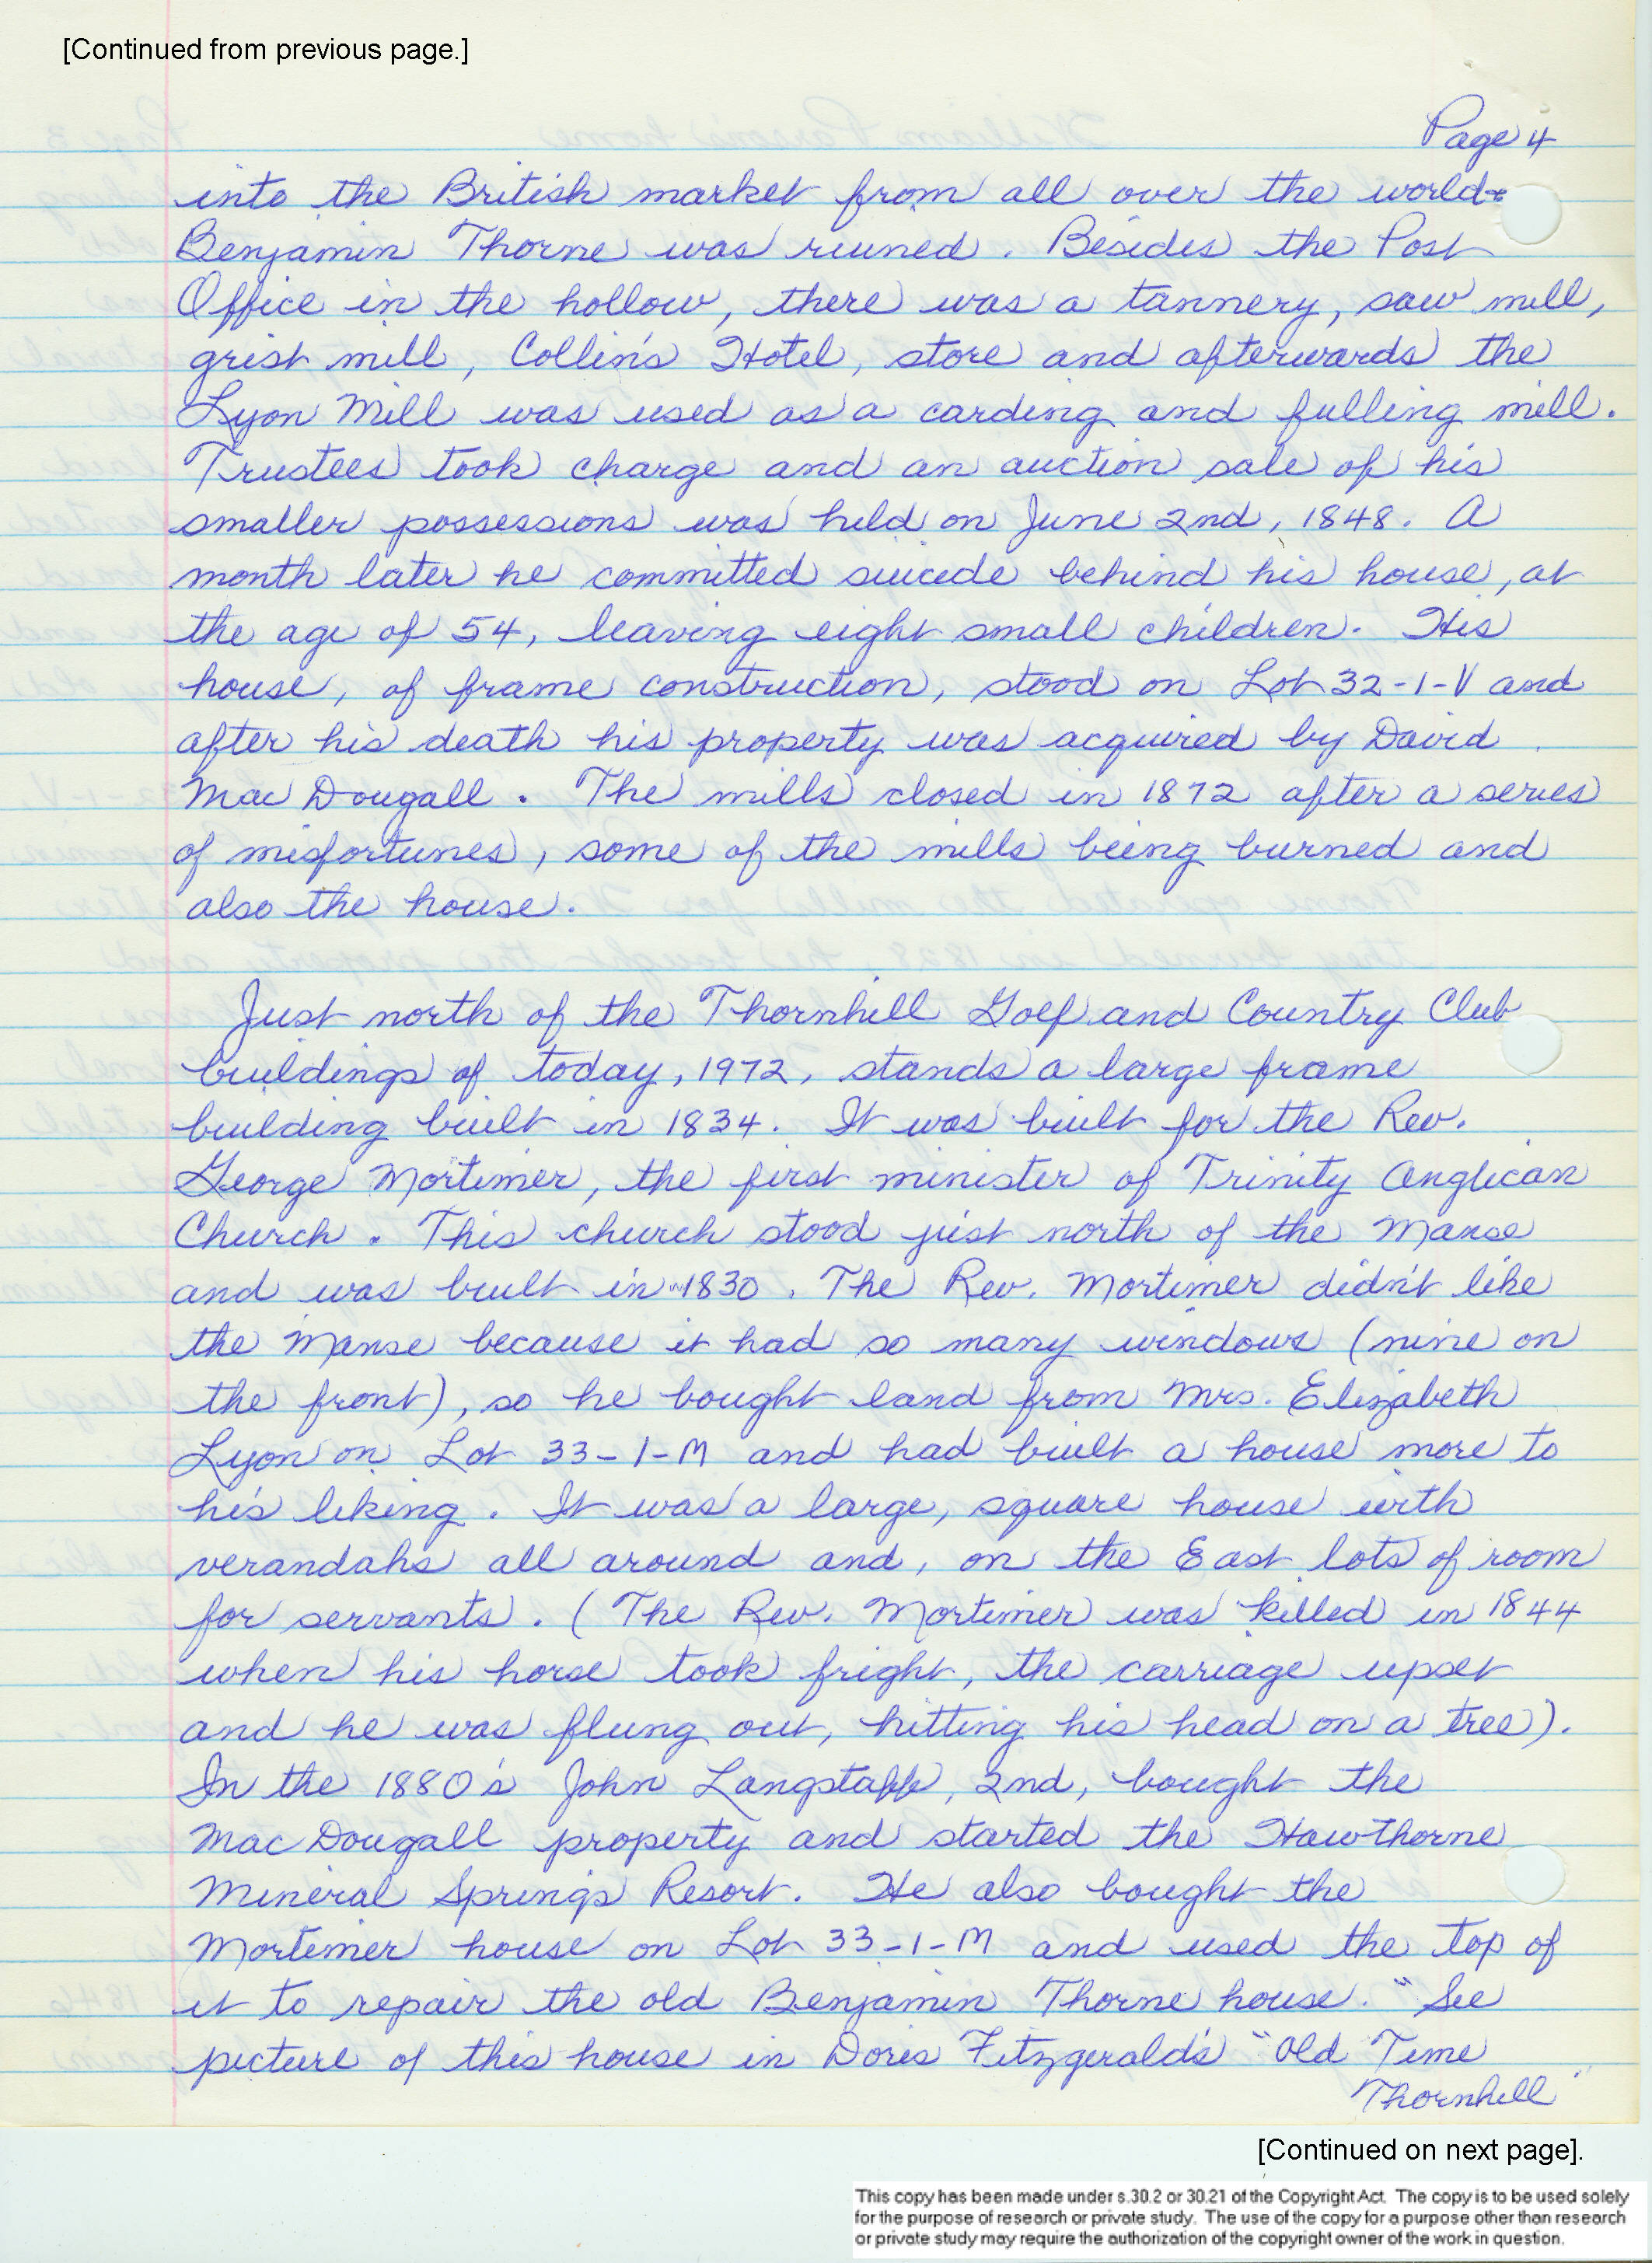 [Continued from previous page.]
Page 4
into the British market from all over the world
Benjamin Thorne was ruined. Besides the Post
Office in the hollow, there was a tannery, saw mill,
grist mill, Collin's Hotel, store and afterwards the
Lyon Mill was used as a carding and fulling mill.
Trustees took charge and an auction sale of his
smaller possessions was held on June 2nd, 1848. A
month later he committed suicide behind his house, at
the age of 54, leaving eight small children. His
house, of frame construction, stood on Lot 32-1-V and
after his death his property was acquired by David
MacDougall. The mills closed in 1872 after a series
of misfortunes, some of the mills being burned and
also the house.
Just north of the Thornhill Golf and Country Club
buildings of today, 1972, stands a large frame
building built in 1834. It was built for the Rev.
George Mortimer, the first minister of Trinity Anglican
Church. This church stood just north of the Manse
and was built in 1830. The Rev. Mortimer didn't like
the Manse because it had so many windows (nine on
the front), so he bought land from Mrs. Elizabeth
Lyon on Lot 33-1-M and had built a house more to
his liking. It was a large, square house with
verandahs all around and, on the East lots of room
for servants. (The Rev. Mortimer was killed in 1844
when his horse took fright, the carriage upset
and he was flung out, hitting his head on a tree).
In the 1880's John Langstaff, 2nd, bought the
MacDougall property and started the Hawthorne
Mineral Springs Resort. He also bought the
Mortimer house on Lot 33-1-M and used the top of
it to repair the old Benjamin Thorne house." See
picture of this house in Doris Fitzgerald's "Old Time
Thornhill"
[Continued on next page].
This copy has been made under s.30.2 or 30.21 of the Copyright Act. The copy is to be used solely
for the purpose of research or private study. The use of the copy for a purpose other than research
or private study may require the authorization of the copyright owner of the work in question.